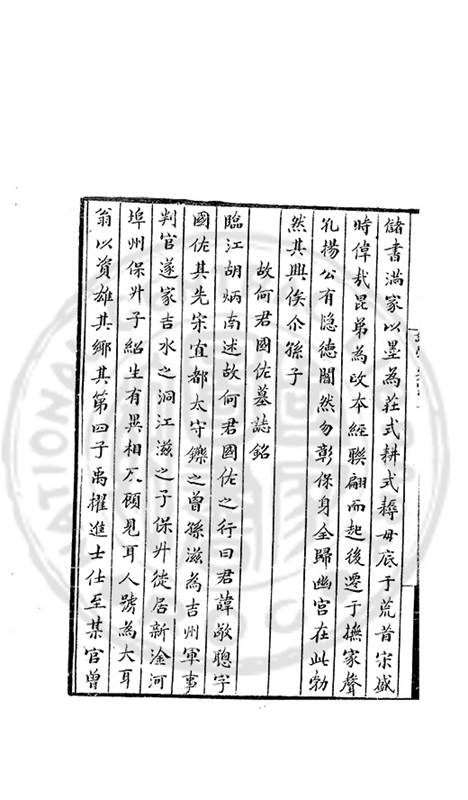 儲書滿家以墨為莊式耕式耨毋底于荒昔宋盛
時偉哉昆弟為政本經聯翩而起後遷于撫家聲
孔揚公有隱德闇然勿彰保身全歸幽宮在此勃
然其興俟尒孫子
故何君國佐墓誌銘
臨江胡炳南述故何君國佐之行曰君諱敬聰字
國佐其先宋宜都太守鑠之曾孫滋為吉州軍事
判官遂家吉水之洞江滋之子保升徙居新淦河
埠州保升子紹生有異相仄顧見耳人號為大耳
翁以資雄其鄉其第四子禹擢進士仕至某官曾